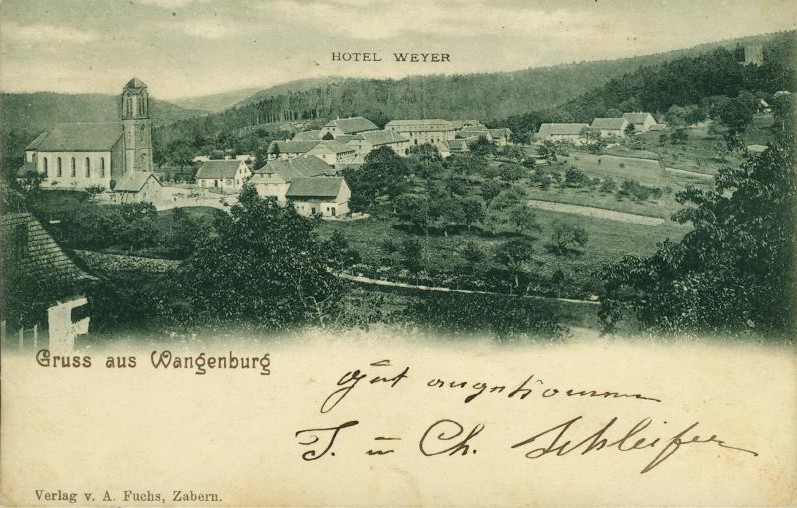 HOTEL WEYER
Gruss aus Wangenburg
Gut angekommen
J. u Ch. Schleifer
Verlag v. A. Fuchs, Zabern.